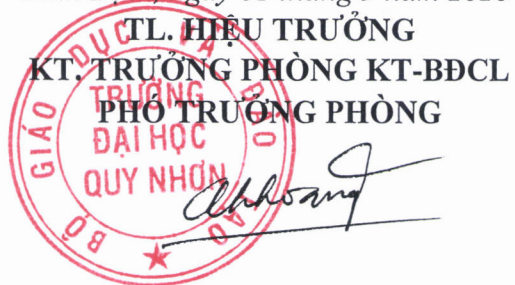 TL. HIỆU TRƯỞNG
KT. TRƯỞNG PHÒNG KT-BĐCL
PHÓ TRƯỞNG PHÒNG
BỘ GIÁO DỤC VÀ ĐÀO TẠO
TRƯỜNG
ĐẠI HỌC
QUY NHƠN